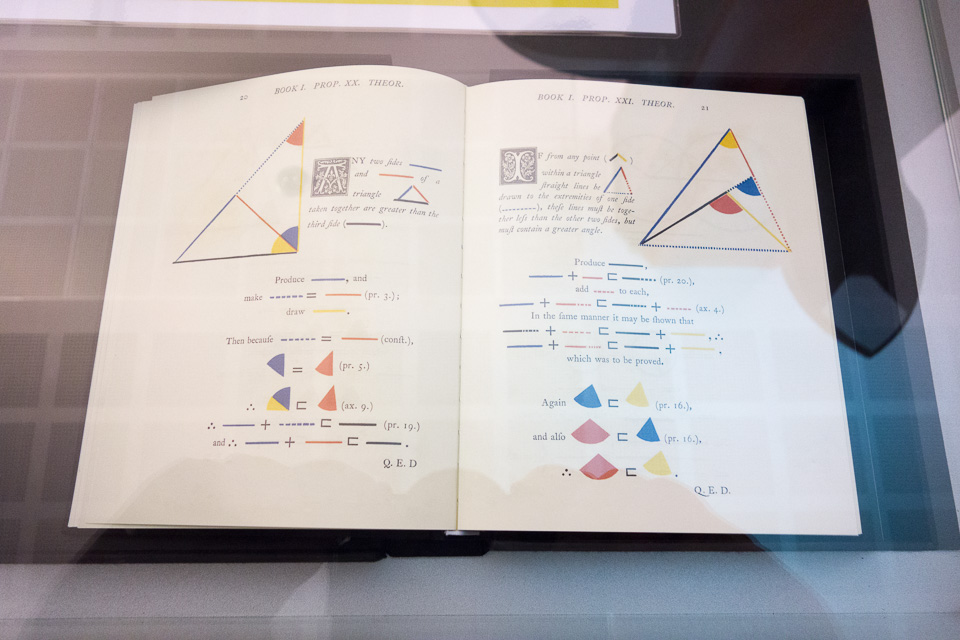 20 BOOK I. PROP. XX. THEOR.
ANY two ſides
and of a
triangle
taken together are greater than the
third ſide ( ).
Produce , and
make = (pr. 3.);
draw .
Then becauſe = (conſt.),
= (pr. 5.)
∴ ⊏ (ax. 9.)
∴ + ⊏ (pr. 19.)
and ∴ + ⊏ .
Q. E. D
BOOK I. PROP. XXI. THEOR. 21
IF from any point ( )
within a triangle
ſtraight lines be
drawn to the extremities of one ſide
( ), theſe lines muſt be toge-
ther leſs than the other two ſides, but
muſt contain a greater angle.
Produce ,
+ ⊏ (pr. 20.),
add to each,
+ ⊏ + (ax. 4.)
In the ſame manner it may be ſhown that
+ ⊏ + , ∴
+ ⊏ + ,
which was to be proved.
Again ⊏ (pr. 16.),
and alſo ⊏ (pr. 16.),
∴ ⊏ .
Q. E. D.